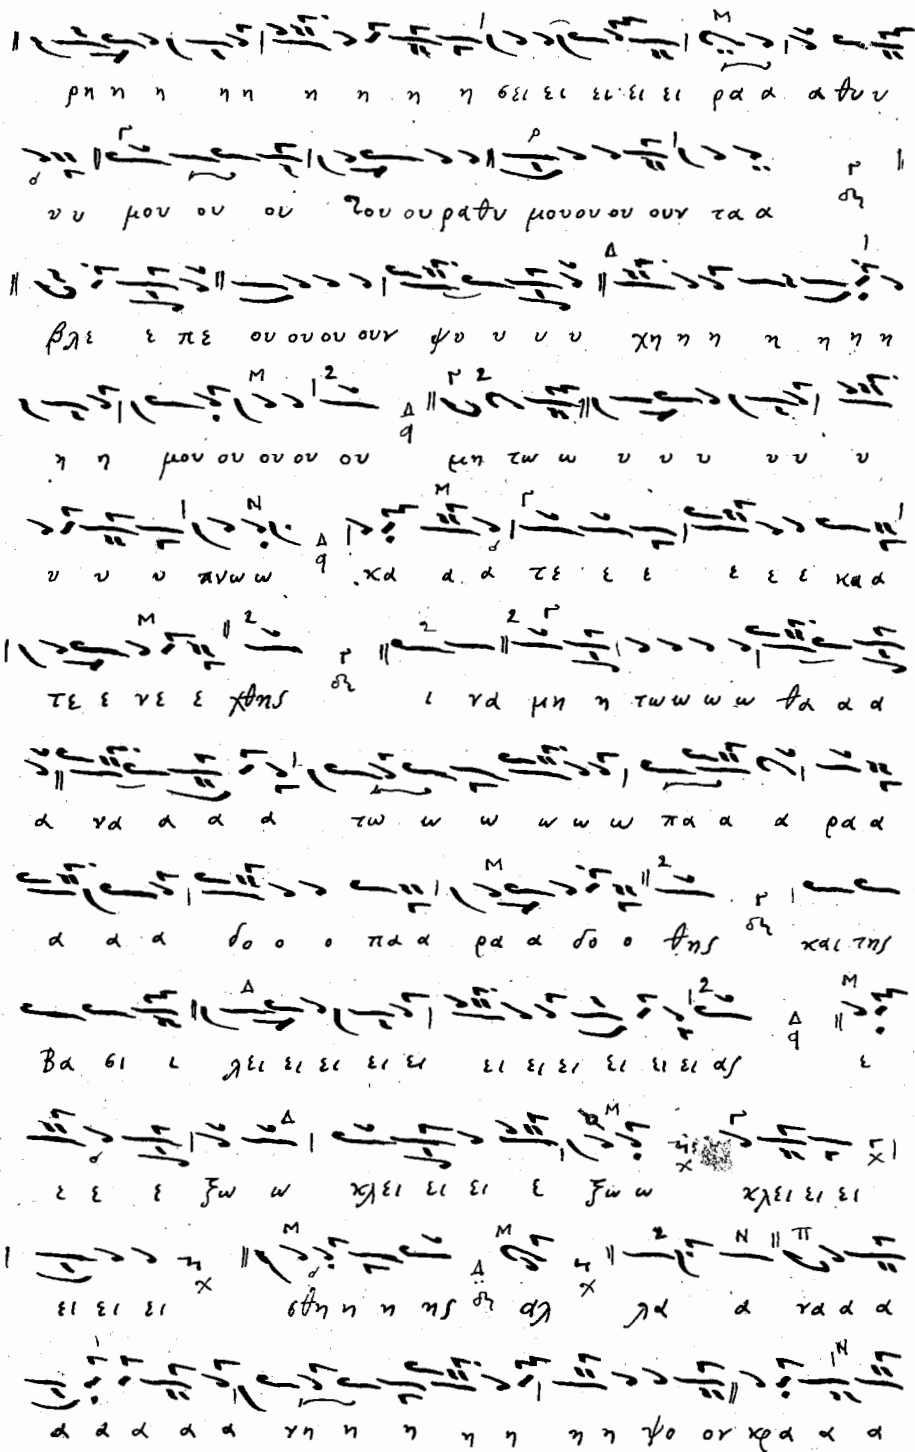 ρη η η η η η η η η σει ει ει ει ει ρα α α θυ υ
υ υ μου ου ου Του ου ρα θυ μου ου ου ουν τα α
βλε ε πε ου ου ου ουν ψυ υ υ υ χη η η η η η η
η η μου ου ου ου ου μη τω ω υ υ υ υ υ υ
υ υ υ πνω ω κα α α τε ε ε ε ε ε κα α
τε ε νε ε χθης ι να μη η τω ω ω ω θα α α
α να α α α τω ω ω ω ω ω πα α α ρα α
α α α δο ο ο πα α ρα α δο ο θης και της
Βα σι ι λει ει ει ει ει ει ει ει ει ει ει ας ε
ε ε ε ξω ω κλει ει ει ε ξω ω κλει ει ει
ει ει ει σθη η η ης αλ λα α να α α
α α α α α νη η η η η η η ψο ον κρα α α